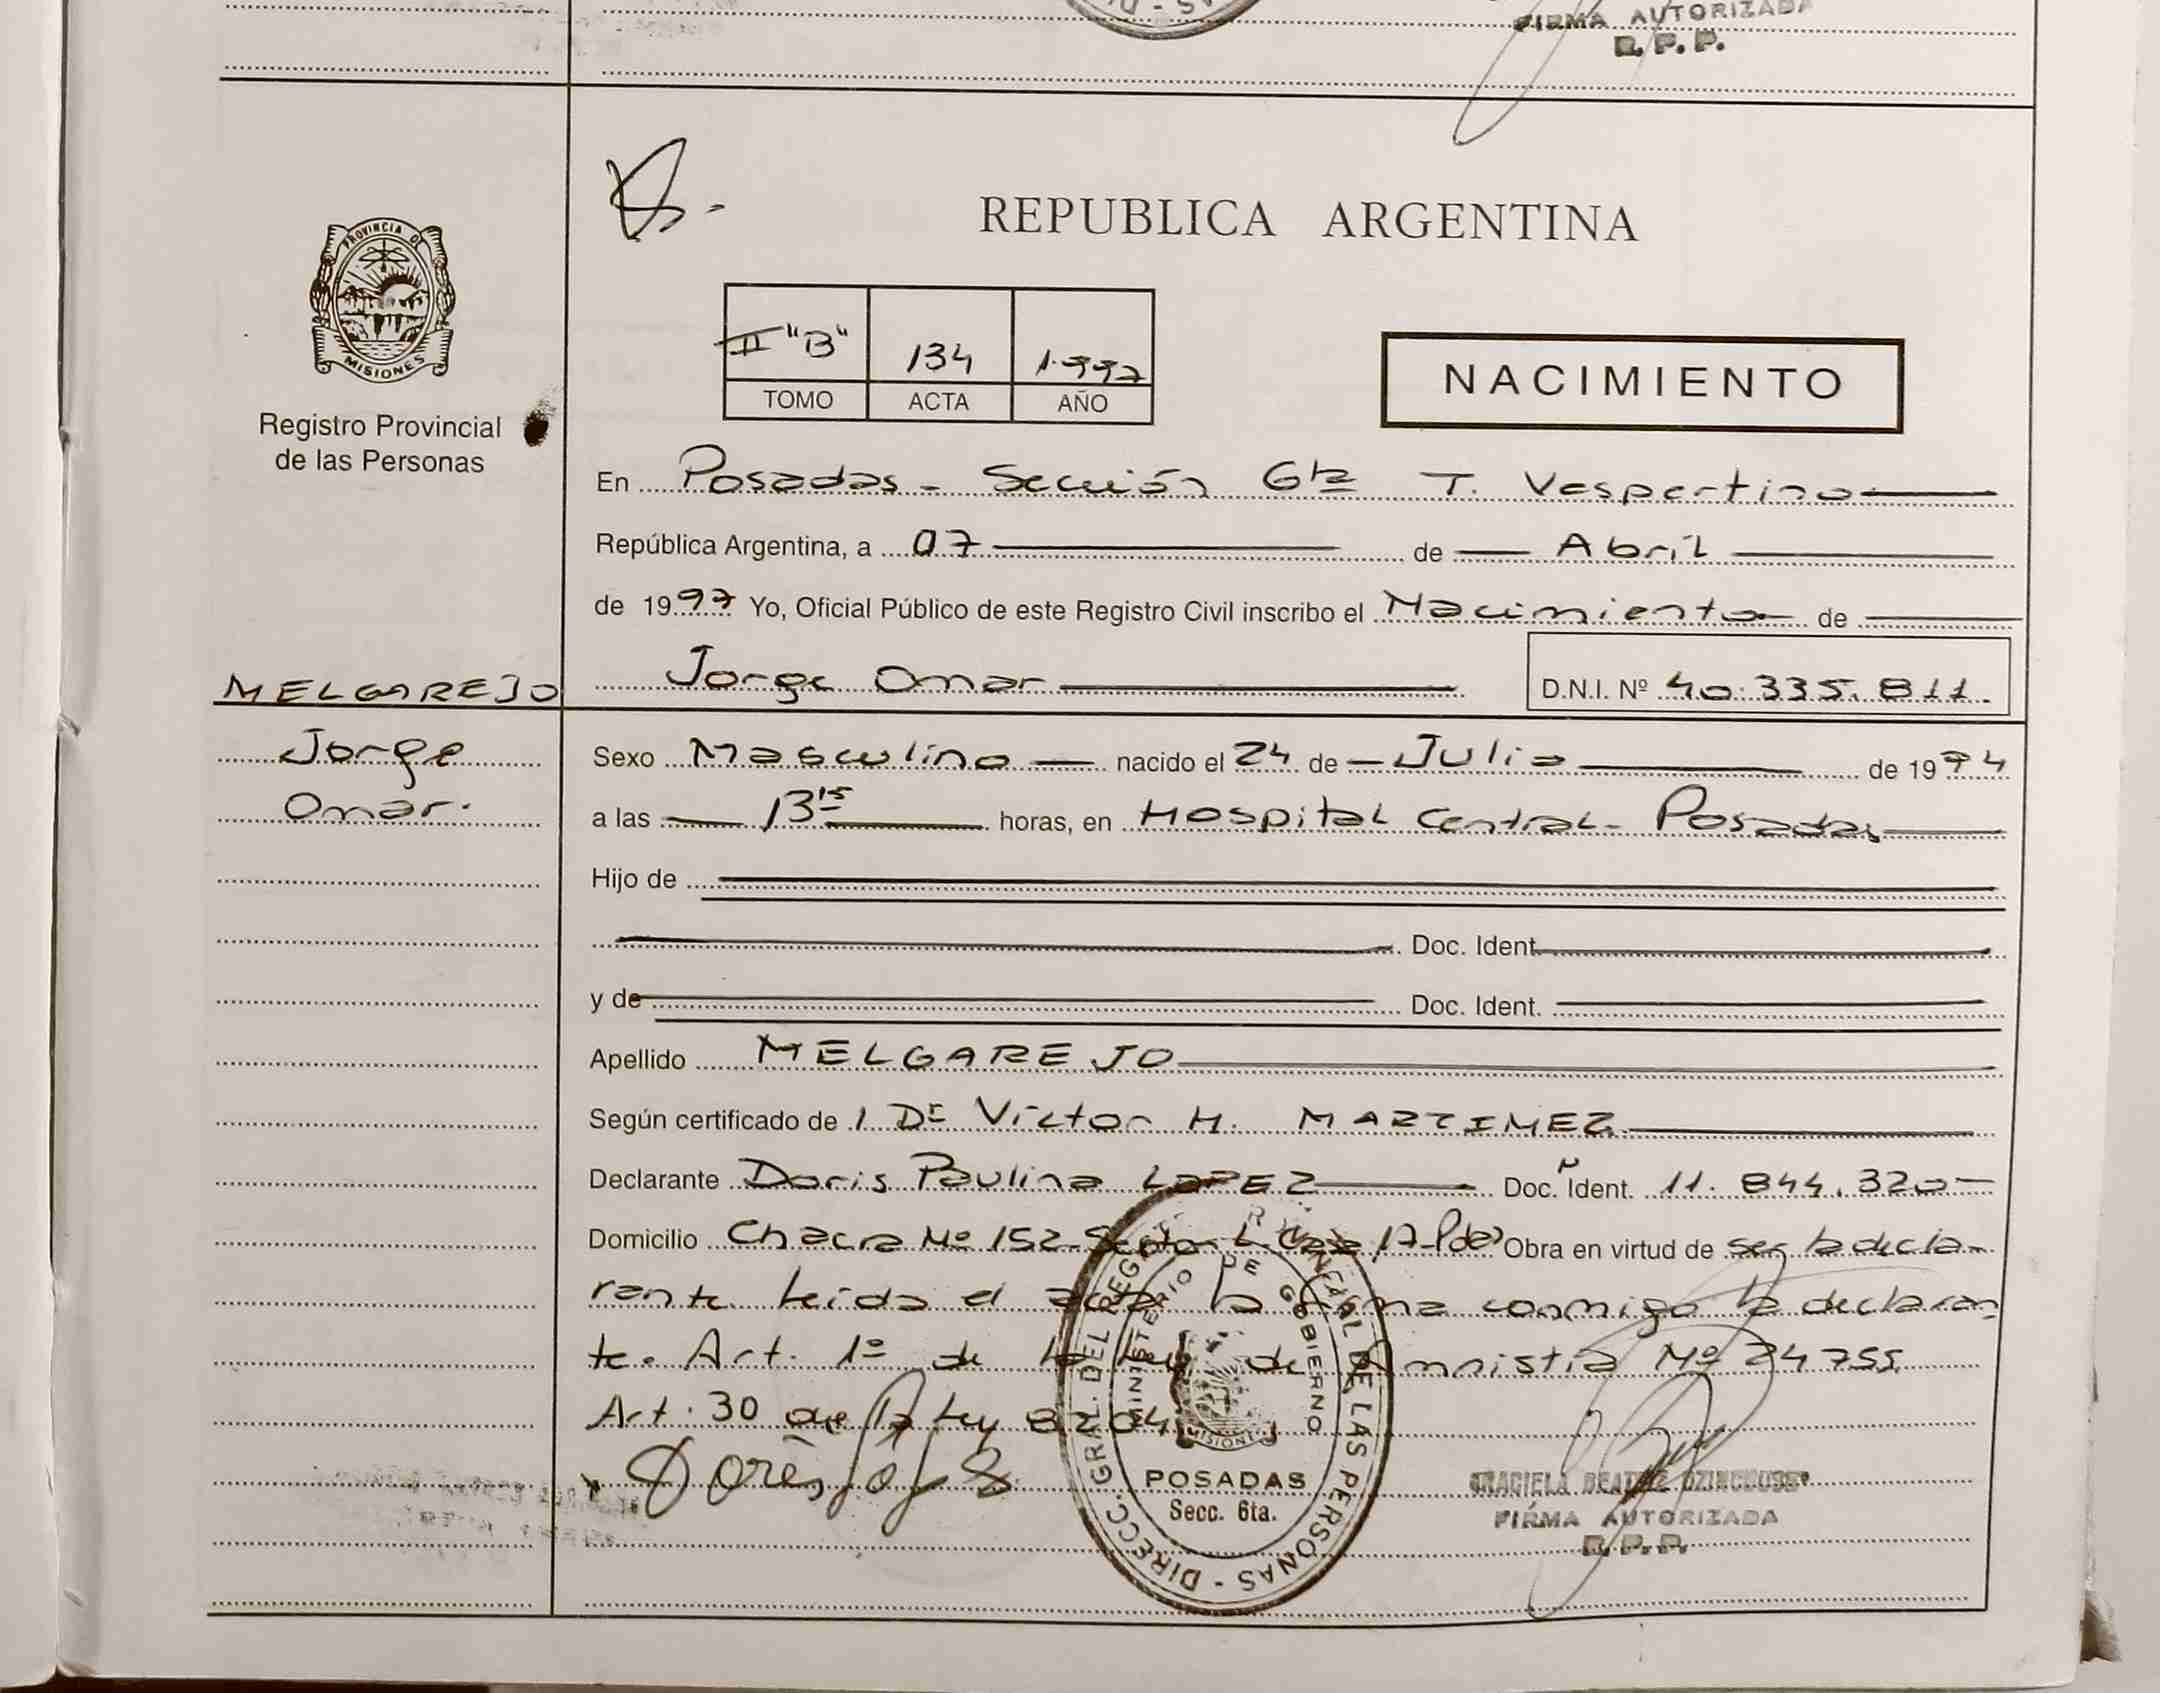 FIRMA AUTORIZADA
R. P. P.
PROVINCIA DE
MISIONES
Registro Provincial
de las Personas
REPUBLICA ARGENTINA
II "B" 134 1.997
TOMO ACTA AÑO
NACIMIENTO
En Posadas - Sección 6ta T. Vespertino
República Argentina, a 07 de Abril
de 1997 Yo, Oficial Público de este Registro Civil inscribo el Nacimiento de
MELGAREJO Jorge Omar D.N.I. Nº 40.335.811.
Jorge Sexo Masculino nacido el 24 de Julio de 1994
Omar. a las 13 15 horas, en Hospital Central - Posadas
Hijo de
Doc. Ident.
y de Doc. Ident.
Apellido MELGAREJO
Según certificado de 1 Dr Víctor H. MARTINEZ
Declarante Doris Paulina LOPEZ Doc. Ident. 11.844.320-
Domicilio Chacra Nº 152 - Sector L Casa 17 - Pdas Obra en virtud de ser la decla-
rante leida el acta la firma conmigo la declaran-
te. Art. 1º de la Ley de Amnistia Nº 24755
Art. 30 de la Ley 8204
DIRECC. GRAL. DEL REG. PROVINCIAL DE LAS PERSONAS -
MINISTERIO DE GOBIERNO
MISIONES
POSADAS
Secc. 6ta.
GRACIELA BEATRIZ
FIRMA AUTORIZADA
R. P. P.